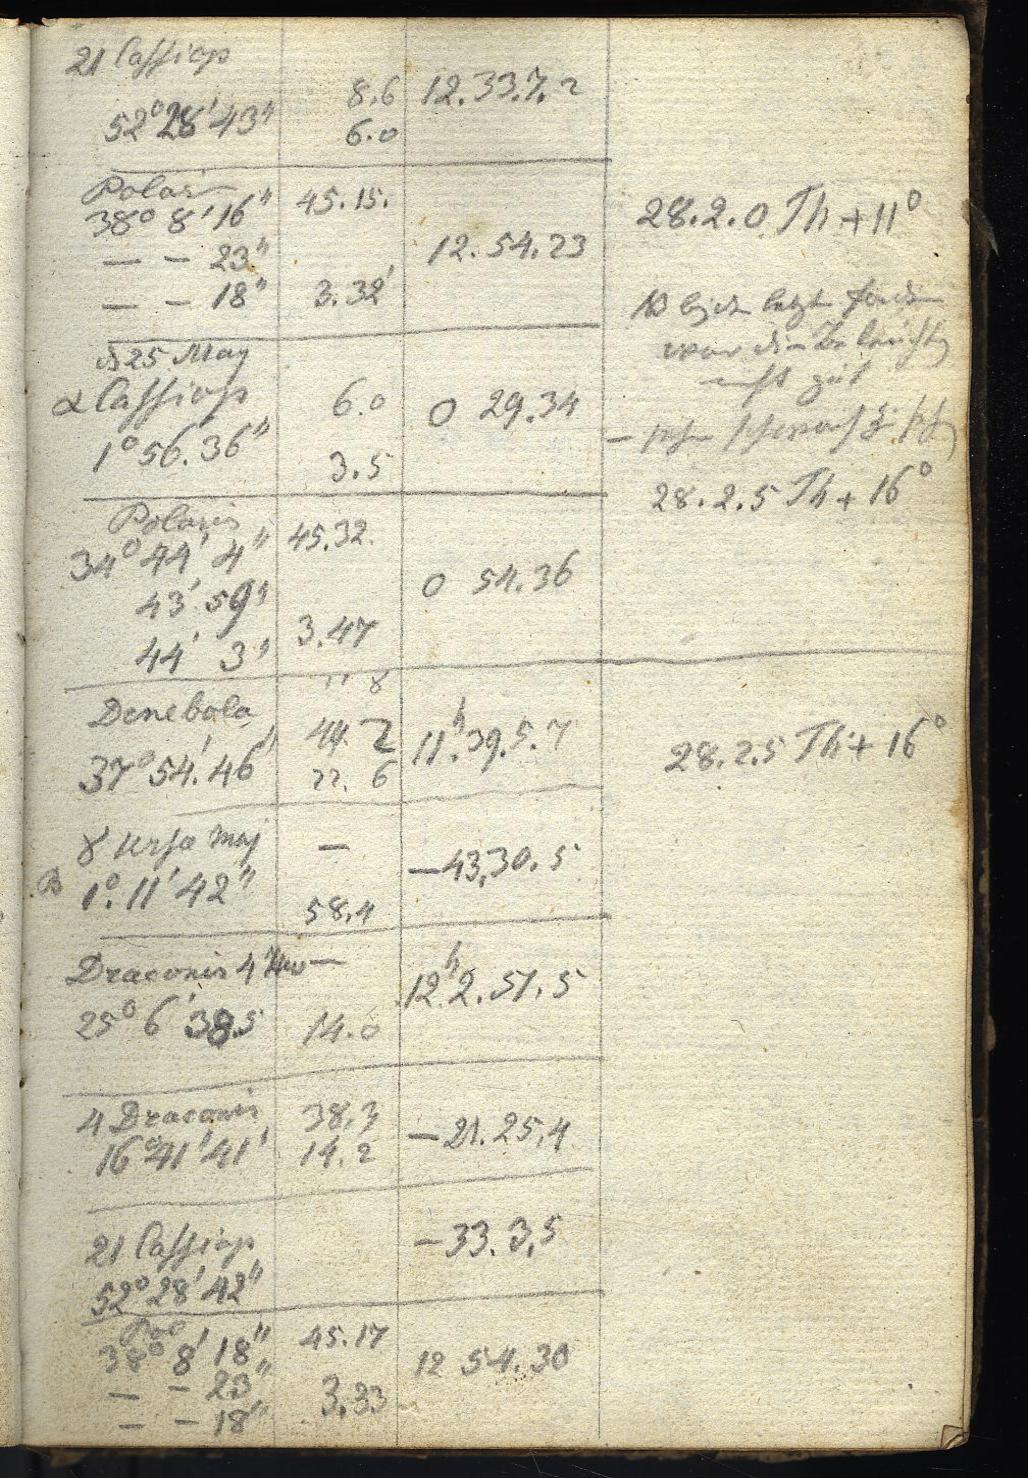 21 Cassiop
8.6 12.33.7.2
52° 28' 43"
6.0
Polaris
38° 8' 16" 45.15.
28.2.0 Th + 11°
— — 23" 12.54.23
— — 18" 3.32'
25 May
war die Beleuchtg
α Cassiop 6.0 0 29.34
nicht gut
1° 56. 36" 3.5
28.2.5 Th + 16°
Polaris
34° 44' 4" 45.32.
43' 59" 0 54.36
44' 3" 3.47
Denebola 44. 2 11h. 39. 5. 7
37° 54'. 46" 22. 6
28.2.5 Th + 16°
γ Ursa Maj —
— 43,30. 5
1°. 11' 42" 58.4
Draconis 4
12h 2. 51. 5
25° 6' 38.5 14.0
4 Draconis 38.3
— 21. 25,4
16° 41' 41' 14.2
21 Cassiop — 33. 3,5
52° 28' 42"
Pol
38° 8' 18" 45.17
12 54. 30
— — 23" 3.33
— — 18"